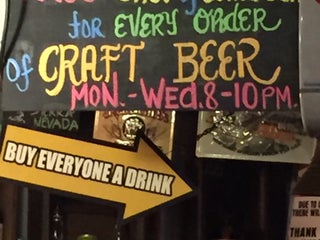 for EVERY ORDER
of CRAFT BEER
MON.-WED. 8-10PM
NEVADA
BUY EVERYONE A DRINK
DUE TO
THERE
THANK